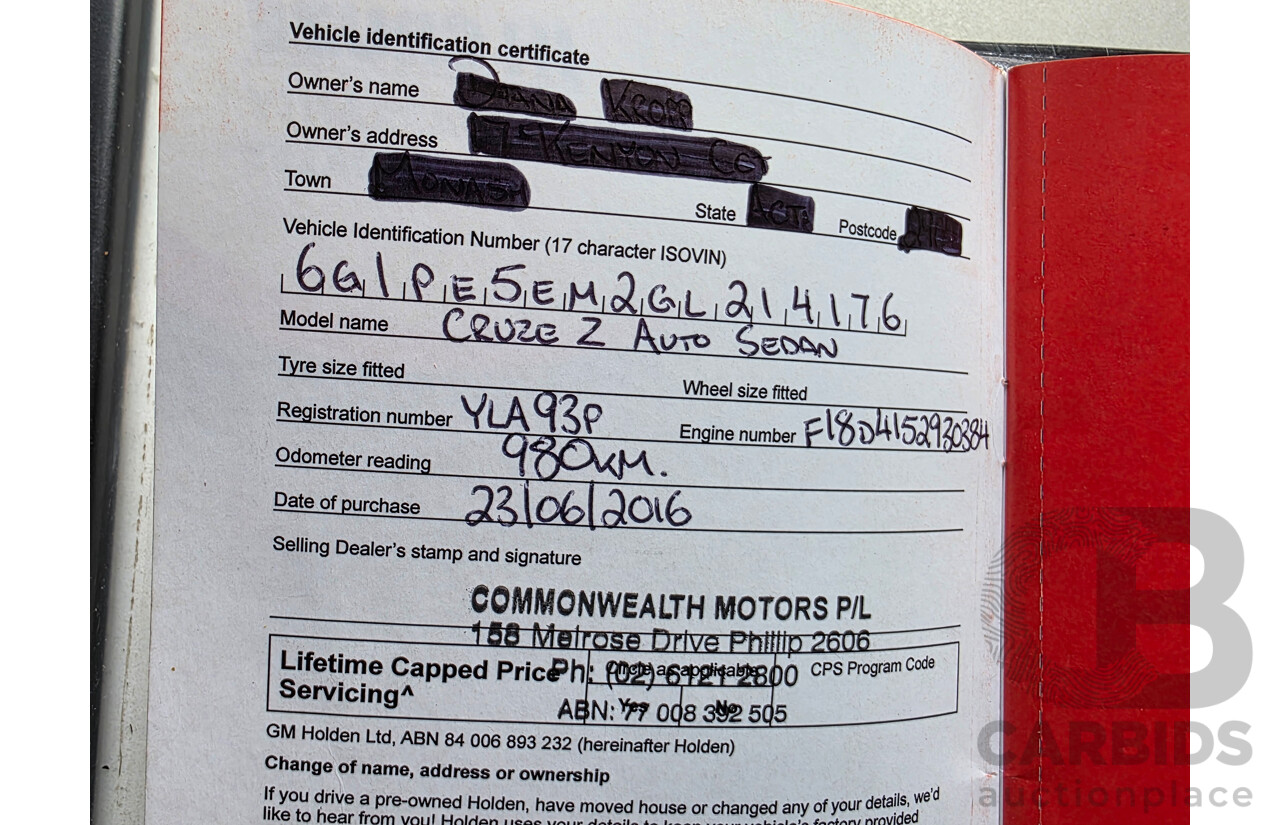 Vehicle identification certificate
Owner's name
Owner's address
Town State Postcode
Vehicle Identification Number (17 character ISOVIN)
6G1PE5EM2GL214176
Model name CRUZE Z AUTO SEDAN
Tyre size fitted Wheel size fitted
Registration number YLA93P Engine number F18D4152930384
Odometer reading 980KM.
Date of purchase 23/06/2016
Selling Dealer's stamp and signature
COMMONWEALTH MOTORS P/L
158 Melrose Drive Phillip 2606
Lifetime Capped Price Servicing^
Ph: (02) 6121 2800
Circle as applicable
CPS Program Code
Yes No
ABN: 77 008 392 505
GM Holden Ltd, ABN 84 006 893 232 (hereinafter Holden)
Change of name, address or ownership
If you drive a pre-owned Holden, have moved house or changed any of your details, we'd
like to hear from you! Holden uses your details to keep your vehicle's factory provided
CARBIDS
auctionplace